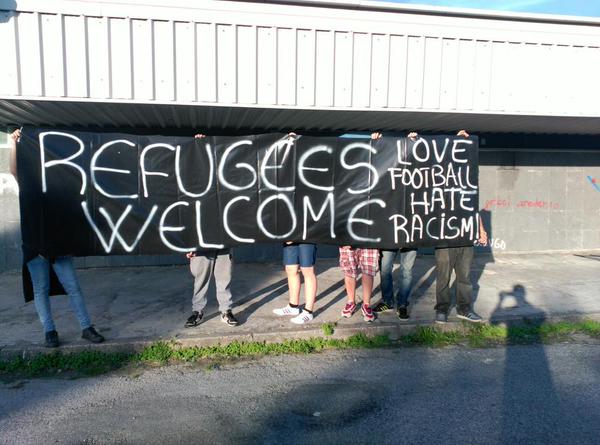 REFUGEES
WELCOME
LOVE
FOOTBALL
HATE
RACISM!